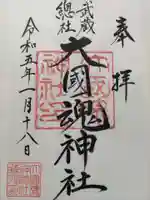 奉拝
武蔵
總社
大國魂神社
令和五年一月十八日